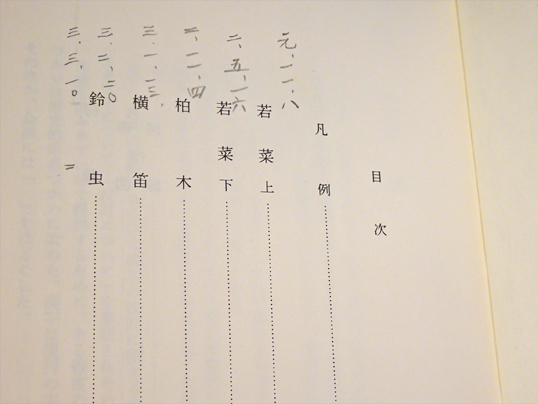 目次
凡例
元、一一、八
若菜上
二、五、一六
若菜下
二、一一、四
柏木
三、一、一三
横笛
三、二、二〇
鈴虫
三、三、一〇
〃